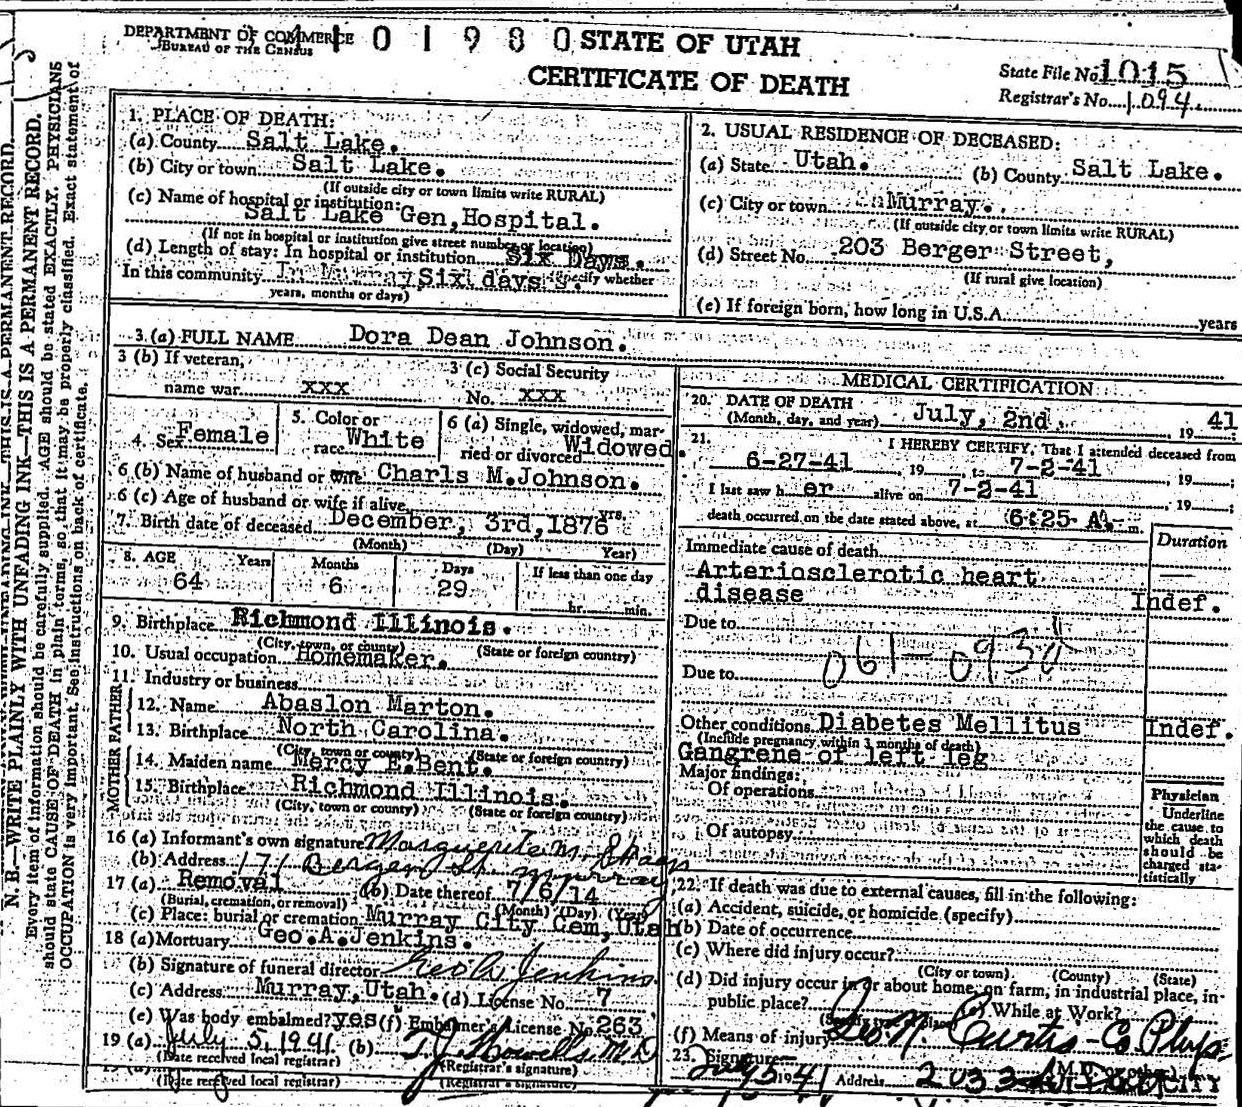 DEPARTMENT OF COMMERCE
BUREAU OF THE CENSUS
41 0 1 9 8 0
STATE OF UTAH
CERTIFICATE OF DEATH
State File No. 1015
Registrar's No. 1094.
N. B.—WRITE PLAINLY WITH UNFADING INK—THIS IS A PERMANENT RECORD.
Every item of information should be carefully supplied. AGE should be stated EXACTLY. PHYSICIANS
should state CAUSE OF DEATH in plain terms, so that it may be properly classified. Exact statement of
OCCUPATION is very important. See instructions on back of certificate.
1. PLACE OF DEATH:
(a) County Salt Lake.
(b) City or town Salt Lake.
(If outside city or town limits write RURAL)
(c) Name of hospital or institution:
Salt Lake Gen, Hospital.
(If not in hospital or institution give street number or location)
(d) Length of stay: In hospital or institution Six Days.
In this community In Murray Six days (Specify whether
years, months or days)
2. USUAL RESIDENCE OF DECEASED:
(a) State Utah. (b) County Salt Lake.
(c) City or town Murray.
(If outside city or town limits write RURAL)
(d) Street No. 203 Berger Street,
(If rural give location)
(e) If foreign born, how long in U.S.A. years
3. (a) FULL NAME Dora Dean Johnson.
3 (b) If veteran,
name war xxx
3 (c) Social Security
No. xxx
4. Sex Female
5. Color or
race White
6 (a) Single, widowed, mar-
ried or divorced Widowed.
6 (b) Name of husband or wife Charls M.Johnson.
6 (c) Age of husband or wife if alive yrs.
7. Birth date of deceased December, 3rd, 1876
(Month) (Day) Year)
8. AGE Years Months Days If less than one day
64 6 29 hr. min.
9. Birthplace Richmond Illinois.
(City, town, or county) (State or foreign country)
10. Usual occupation Homemaker.
11. Industry or business
FATHER
12. Name Abaslon Marton.
13. Birthplace North Carolina.
(City, town or county) (State or foreign country)
MOTHER
14. Maiden name Mercy E.Bent.
15. Birthplace Richmond Illinois.
(City, town or county) (State or foreign country)
16 (a) Informant's own signature Marguerite M.
(b) Address 171 Bergen St. Murray
17 (a) Removal (b) Date thereof 7/6/14
(Burial, cremation, or removal) (Month) (Day) (Year)
(c) Place: burial or cremation Murray City Cem, Utah
18 (a) Mortuary Geo.A.Jenkins.
(b) Signature of funeral director Geo A Jenkins
(c) Address Murray, Utah. (d) License No. 7
(e) Was body embalmed? yes (f) Embalmer's License No. 263
19 (a) July 5, 1941 (b) T J Howells, M.D
(Date received local registrar) (Registrar's signature)
(Date received local registrar) (Registrar's signature)
MEDICAL CERTIFICATION
20. DATE OF DEATH
(Month, day, and year) July, 2nd. 19 41
21. I HEREBY CERTIFY, That I attended deceased from
6-27-41, 19, to 7-2-41, 19 ;
I last saw h er alive on 7-2-41, 19 ;
death occurred on the date stated above, at 6:25 A. m.
Duration
Immediate cause of death
Arteriosclerotic heart
disease Indef.
Due to
061-093
Due to
Other conditions Diabetes Mellitus Indef.
(Include pregnancy within 3 months of death)
Gangrene of left leg
Major findings:
Of operations
Of autopsy
Physician
Underline
the cause to
which death
should be
charged sta-
tistically
22. If death was due to external causes, fill in the following:
(a) Accident, suicide, or homicide (specify)
(b) Date of occurrence
(c) Where did injury occur?
(City or town) (County) (State)
(d) Did injury occur in or about home, on farm, in industrial place, in
public place? (e) While at Work?
(f) Means of injury
N. Curtis - Co Phys.
23. Signature
(M.D. or other)
1941 Address CITY